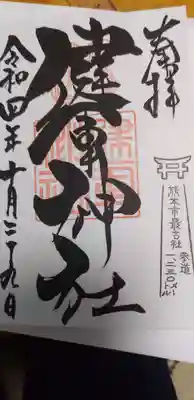 奉拝
健軍神社
令和四年十月二十九日
熊本市最古社
参道
一二三〇メートル